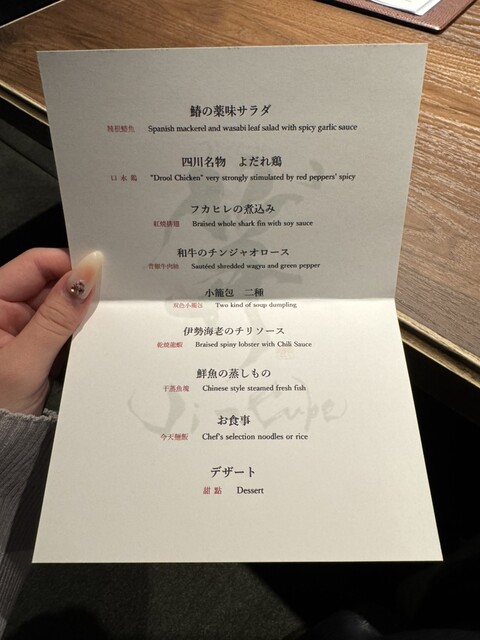 鰆の薬味サラダ
Spanish mackerel and wasabi leaf salad with spicy garlic sauce
四川名物 よだれ鶏
口水鶏 "Drool Chicken" very strongly stimulated by red peppers' spicy
フカヒレの煮込み
紅焼排翅 Braised whole shark fin with soy sauce
和牛のチンジャオロース
青椒牛肉絲 Sautéed shredded wagyu and green pepper
小籠包 二種
双色小籠包 Two kind of soup dumpling
伊勢海老のチリソース
乾焼龍蝦 Braised spiny lobster with Chili Sauce
鮮魚の蒸しもの
干蒸魚塊 Chinese style steamed fresh fish
お食事
今天麺飯 Chef's selection noodles or rice
デザート
甜點 Dessert